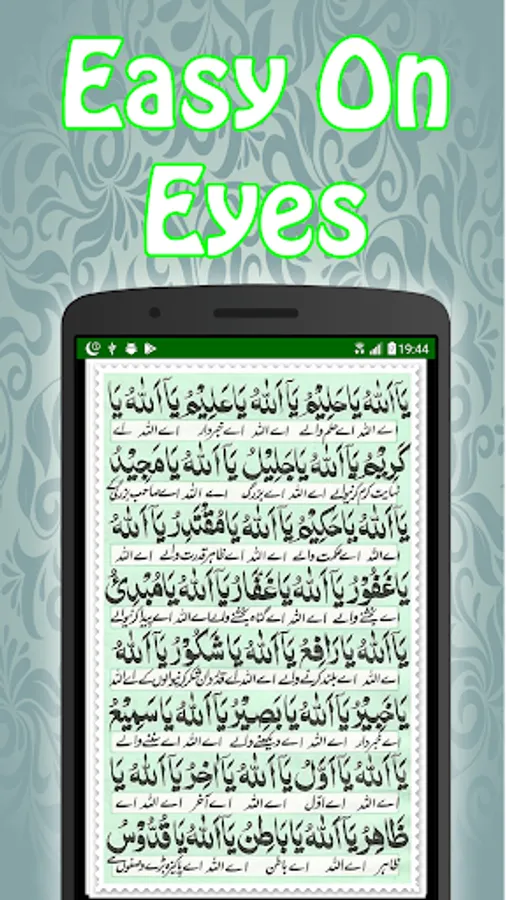 Easy On
Eyes
19:44
یَآ اَللهُ یَا حَلِیْمُ یَآ اَللهُ یَا عَلِیْمُ یَآ اَللهُ یَا
اے اللہ اے حلم والے اے اللہ اے خبردار اے اللہ اے
کَرِیْمُ یَآ اَللهُ یَا جَلِیْلُ یَآ اَللهُ یَا مَجِیْدُ
نہایت کرم کرنیوالے اے اللہ اے بزرگ اے اللہ اے صاحب بزرگی کے
یَآ اَللهُ یَا حَکِیْمُ یَآ اَللهُ یَا مُقْتَدِرُ یَآ اَللهُ
اے اللہ اے حکمت والے اے اللہ اے ظاہر قدرت والے اے اللہ
یَا غَفُوْرُ یَآ اَللهُ یَا غَفَّارُ یَآ اَللهُ یَا مُبْدِئُ
اے بخشنے والے اے اللہ اے گناہ بخشنے والے اے اللہ اے پیدا کرنیوالے
یَآ اَللهُ یَا رَافِعُ یَآ اَللهُ یَا شَکُوْرُ یَآ اَللهُ
اے اللہ اے بلند کرنے والے اے اللہ اے قدردان شکر کرنیوالوں کے اے اللہ
یَا خَبِیْرُ یَآ اَللهُ یَا بَصِیْرُ یَآ اَللهُ یَا سَمِیْعُ
اے خبردار اے اللہ اے دیکھنے والے اے اللہ اے سننے والے
یَآ اَللهُ یَا اَوَّلُ یَآ اَللهُ یَآ اٰخِرُ یَآ اَللهُ یَا
اے اللہ اے اوّل اے اللہ اے آخر اے اللہ اے
ظَاهِرُ یَآ اَللهُ یَا بَاطِنُ یَآ اَللهُ یَا قُدُّوْسُ
ظاہر اے اللہ اے باطن اے اللہ اے پاکیزہ بڑے وصفوں کے